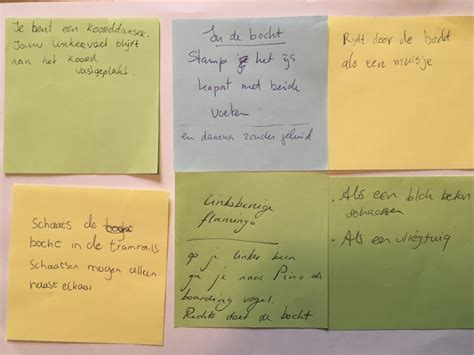 Je bent een koorddanser.
Jouw linkervoet blijft
aan het koord
vastgeplakt.
In de bocht
Stamp je het ijs
kapot met beide
voeten
en daarna zonder geluid
Rijdt door de bocht
als een muisje
Schaats de
bocht in de tramrails
Schaatsen mogen alleen
naast elkaar
linksbenige
flamingo
op je linker been
ga je naar Pino de
vogel.
Rechts doet de bocht
- Als een blok beton
schaatsen
- Als een vliegtuig